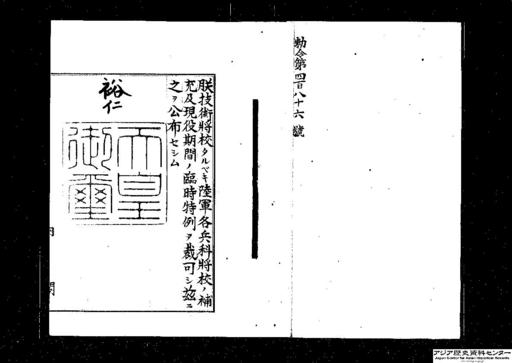 勅令第四百八十六號
朕技術將校タルベキ陸軍各兵科將校ノ補
充及現役期間ノ臨時特例ヲ裁可シ茲ニ
之ヲ公布セシム
裕仁
天皇
御璽
内閣
アジア歴史資料センター
Japan Center for Asian Historical Records